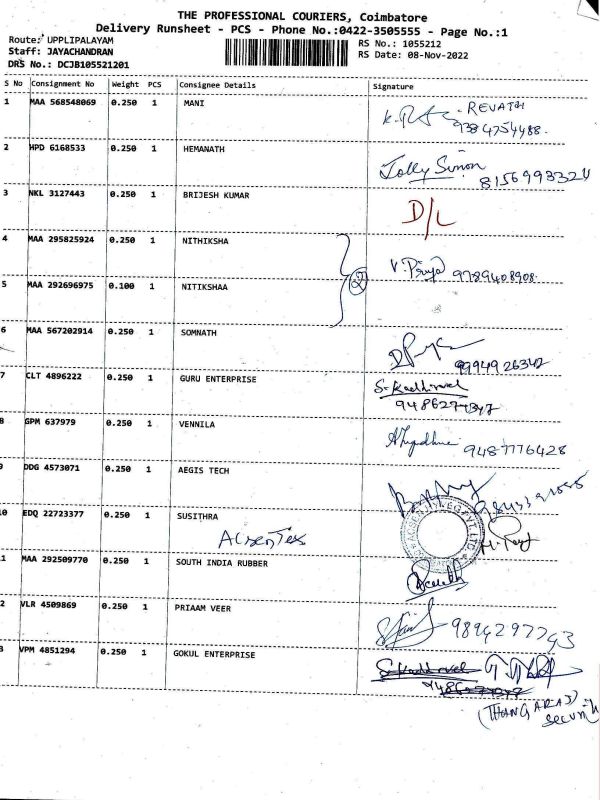 THE PROFESSIONAL COURIERS, Coimbatore
Delivery Runsheet - PCS - Phone No.:0422-3505555 - Page No.:1
Route: UPPLIPALAYAM
RS No.: 1055212
Staff: JAYACHANDRAN
RS Date: 08-Nov-2022
DRS No.: DCJB105521201
S No Consignment No Weight PCS Consignee Details Signature
1 MAA 568548069 0.250 1 MANI
REVATHI
9384754488.
2 HPD 6168533 0.250 1 HEMANATH
Jolly Simon
8156993324
3 NKL 3127443 0.250 1 BRIJESH KUMAR
D/L
4 MAA 295825924 0.250 1 NITHIKSHA
V. Priya 9789408908.
5 MAA 292696975 0.100 1 NITIKSHAA
2
6 MAA 567202914 0.250 1 SOMNATH
9994926342
7 CLT 4896222 0.250 1 GURU ENTERPRISE
S. Kadhiravel
8 GPM 637979 0.250 1 VENNILA
9487776428
9 DDG 4573071 0.250 1 AEGIS TECH
10 EDQ 22723377 0.250 1 SUSITHRA
Acsen Tex
1 MAA 292509770 0.250 1 SOUTH INDIA RUBBER
2 VLR 4509869 0.250 1 PRIAAM VEER
9894297743
3 VPM 4851294 0.250 1 GOKUL ENTERPRISE
(THANGARAJ)
Security